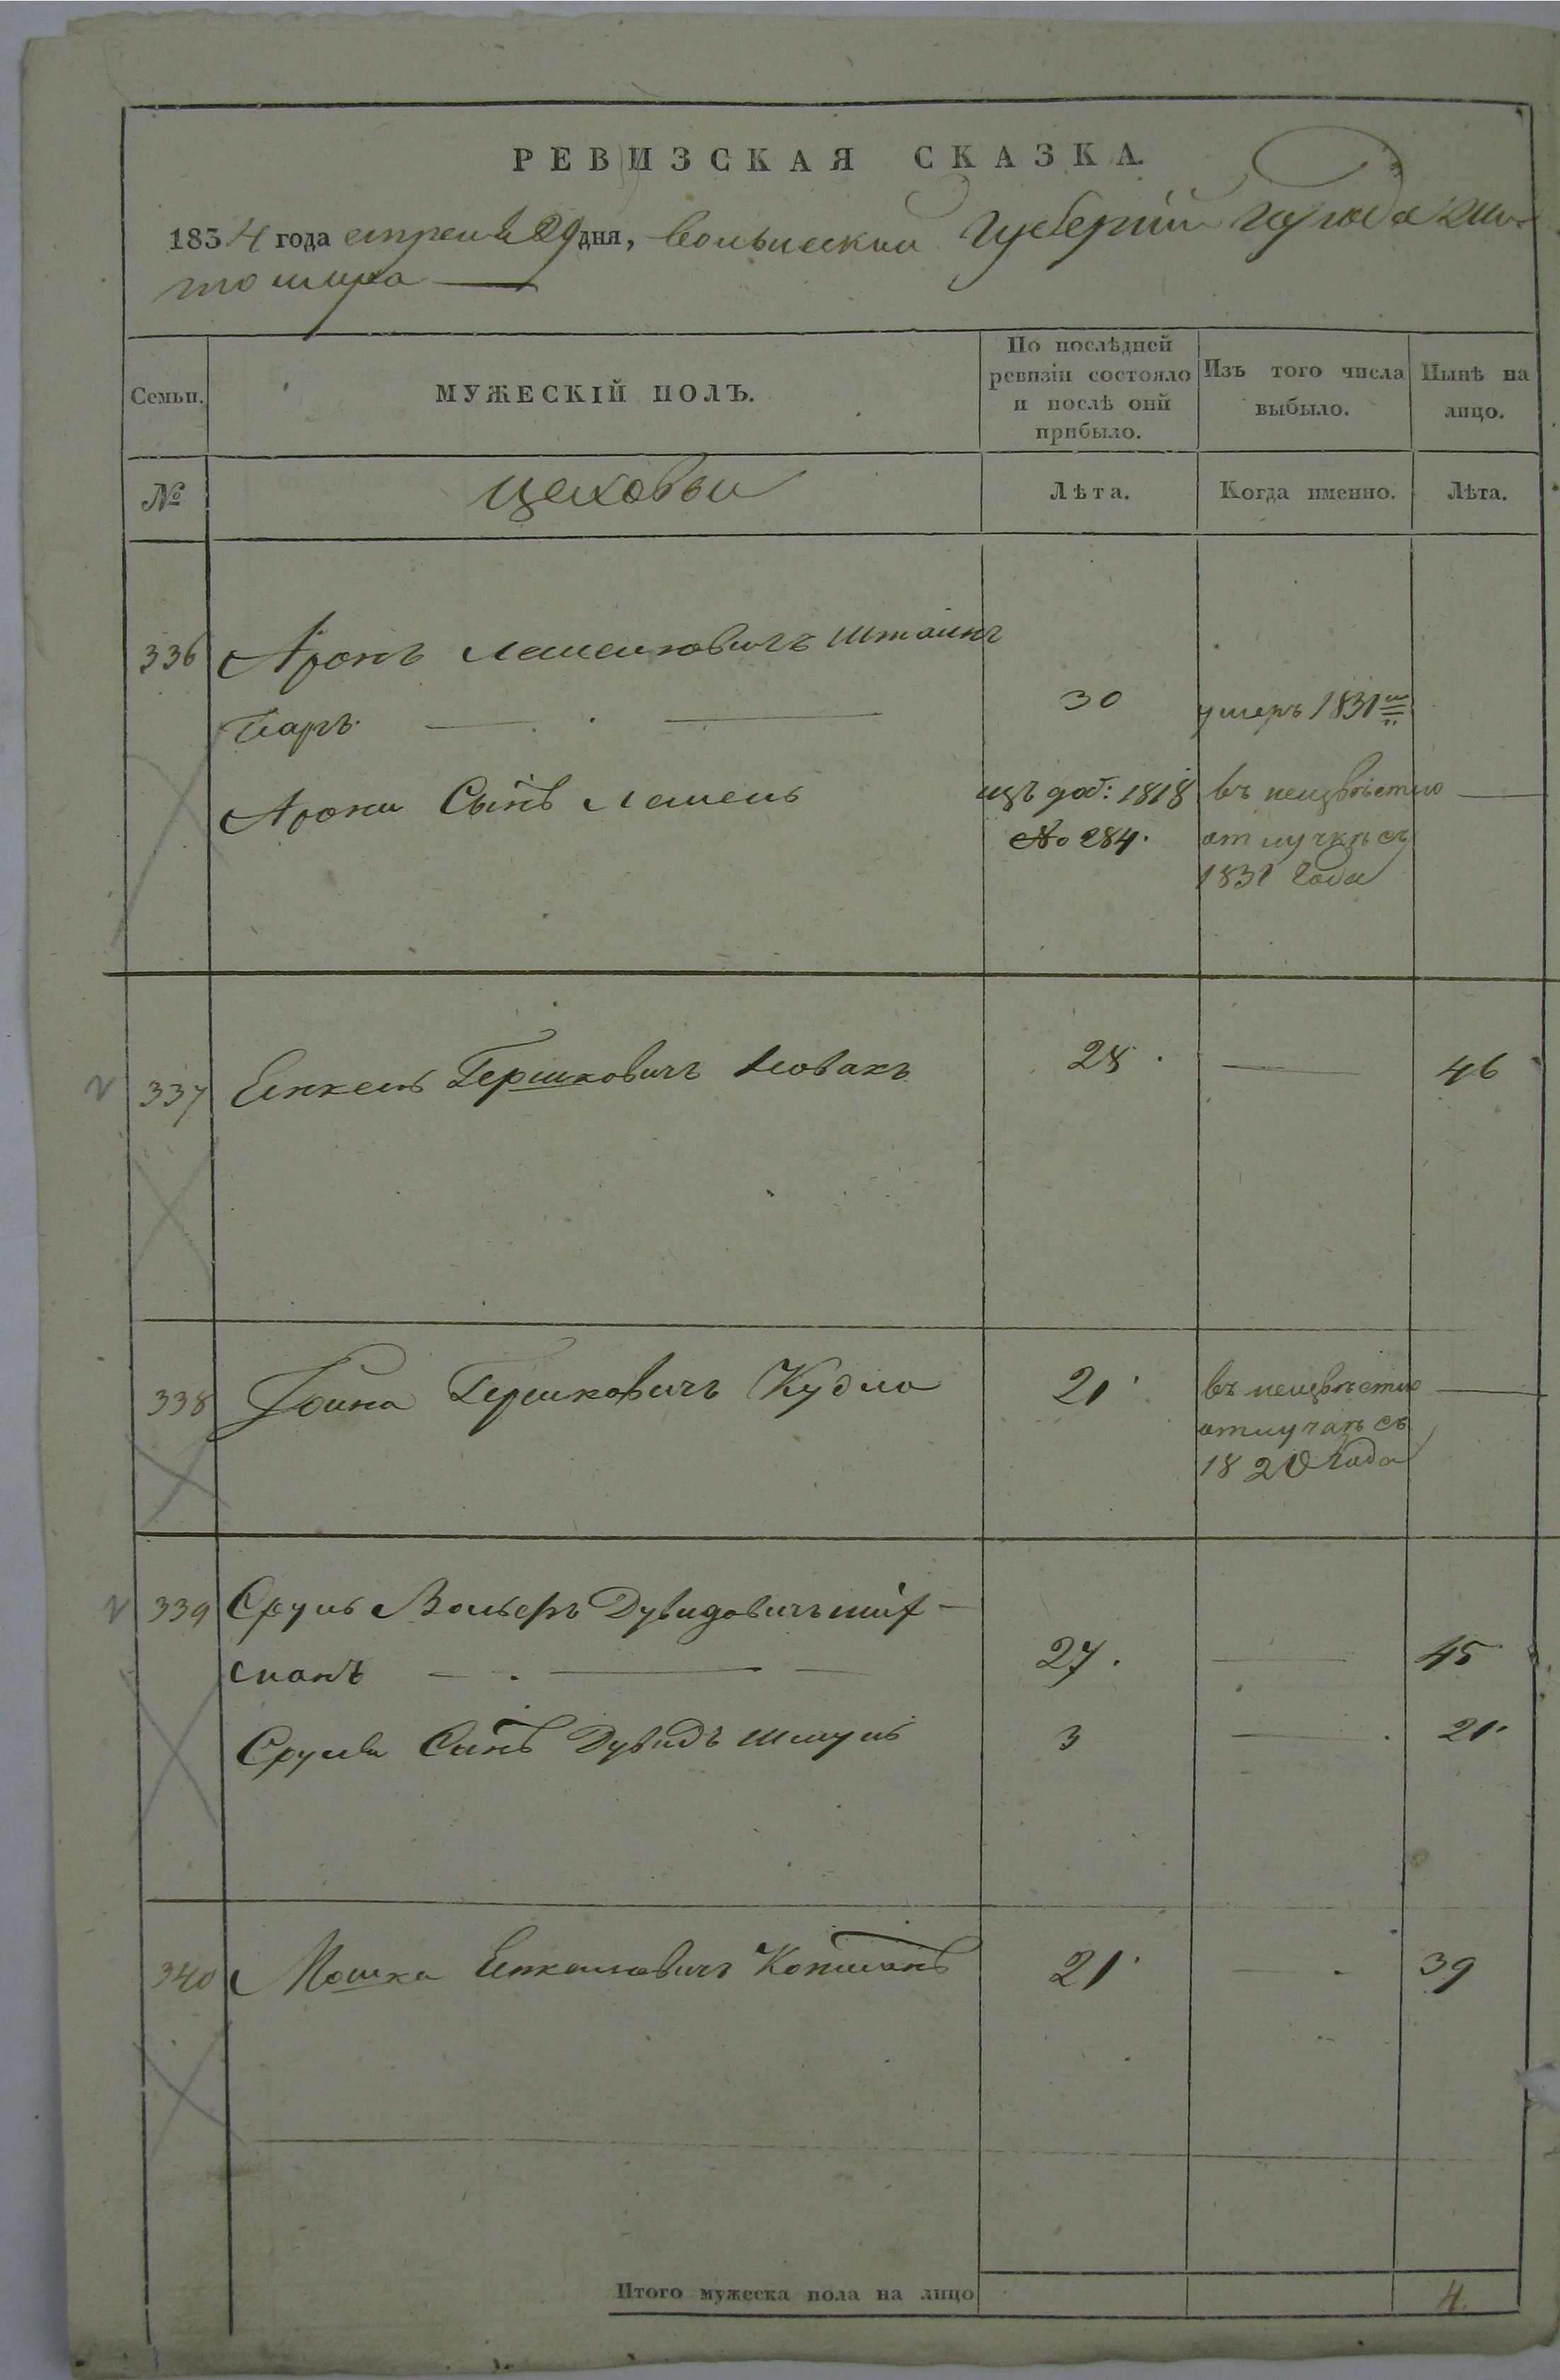 РЕВИЗСКАЯ СКАЗКА.
1834 года апреля 29 дня, волынской Губернии города Жи-
томира
Семьи.
МУЖЕСКІЙ ПОЛЪ.
По послѣдней ревизіи состояло и послѣ оній прибыло.
Изъ того числа выбыло.
Нынѣ на лицо.
№
Цеховыи
Лѣта.
Когда именно.
Лѣта.
336 Аронъ Лейзеровичъ Штаин
гаръ 30 умеръ 1831
Арона Сынъ изъ доб: 1818 въ неизвѣстно
№ 284. отлучкѣ съ
1831 Года
337 Янкель Гершковичъ Новакъ 28 46
338 Гоина Гершковичъ Кудла 21 въ неизвѣстно
отлучкѣ съ
1820 Года
339 Сруль Вольфъ Дувидовичъ
манъ 27. 45
Сруля Сынъ Дувидъ Шмуль 3 21
340 Мошка Янкелиовичъ 21 39
Итого мужеска пола на лицо 4.